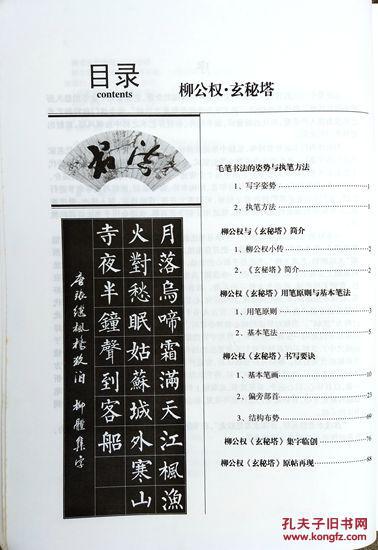 目录
contents
柳公权·玄秘塔
毛笔书法的姿势与执笔方法
1、写字姿势 1
2、执笔方法 1
柳公权与《玄秘塔》简介
1、柳公权小传 2
2、《玄秘塔》简介 2
柳公权《玄秘塔》用笔原则与基本笔法
1、用笔原则 3
2、基本笔法 5
柳公权《玄秘塔》书写要诀
1、基本笔画 10
2、偏旁部首 23
3、结构布势 69
柳公权《玄秘塔》集字临创 76
柳公权《玄秘塔》原帖再现 88
月落烏啼霜滿天江楓漁
火對愁眠姑蘇城外寒山
寺夜半鐘聲到客船
唐張繼楓橋夜泊 柳體集字
孔夫子旧书网
www.kongfz.com